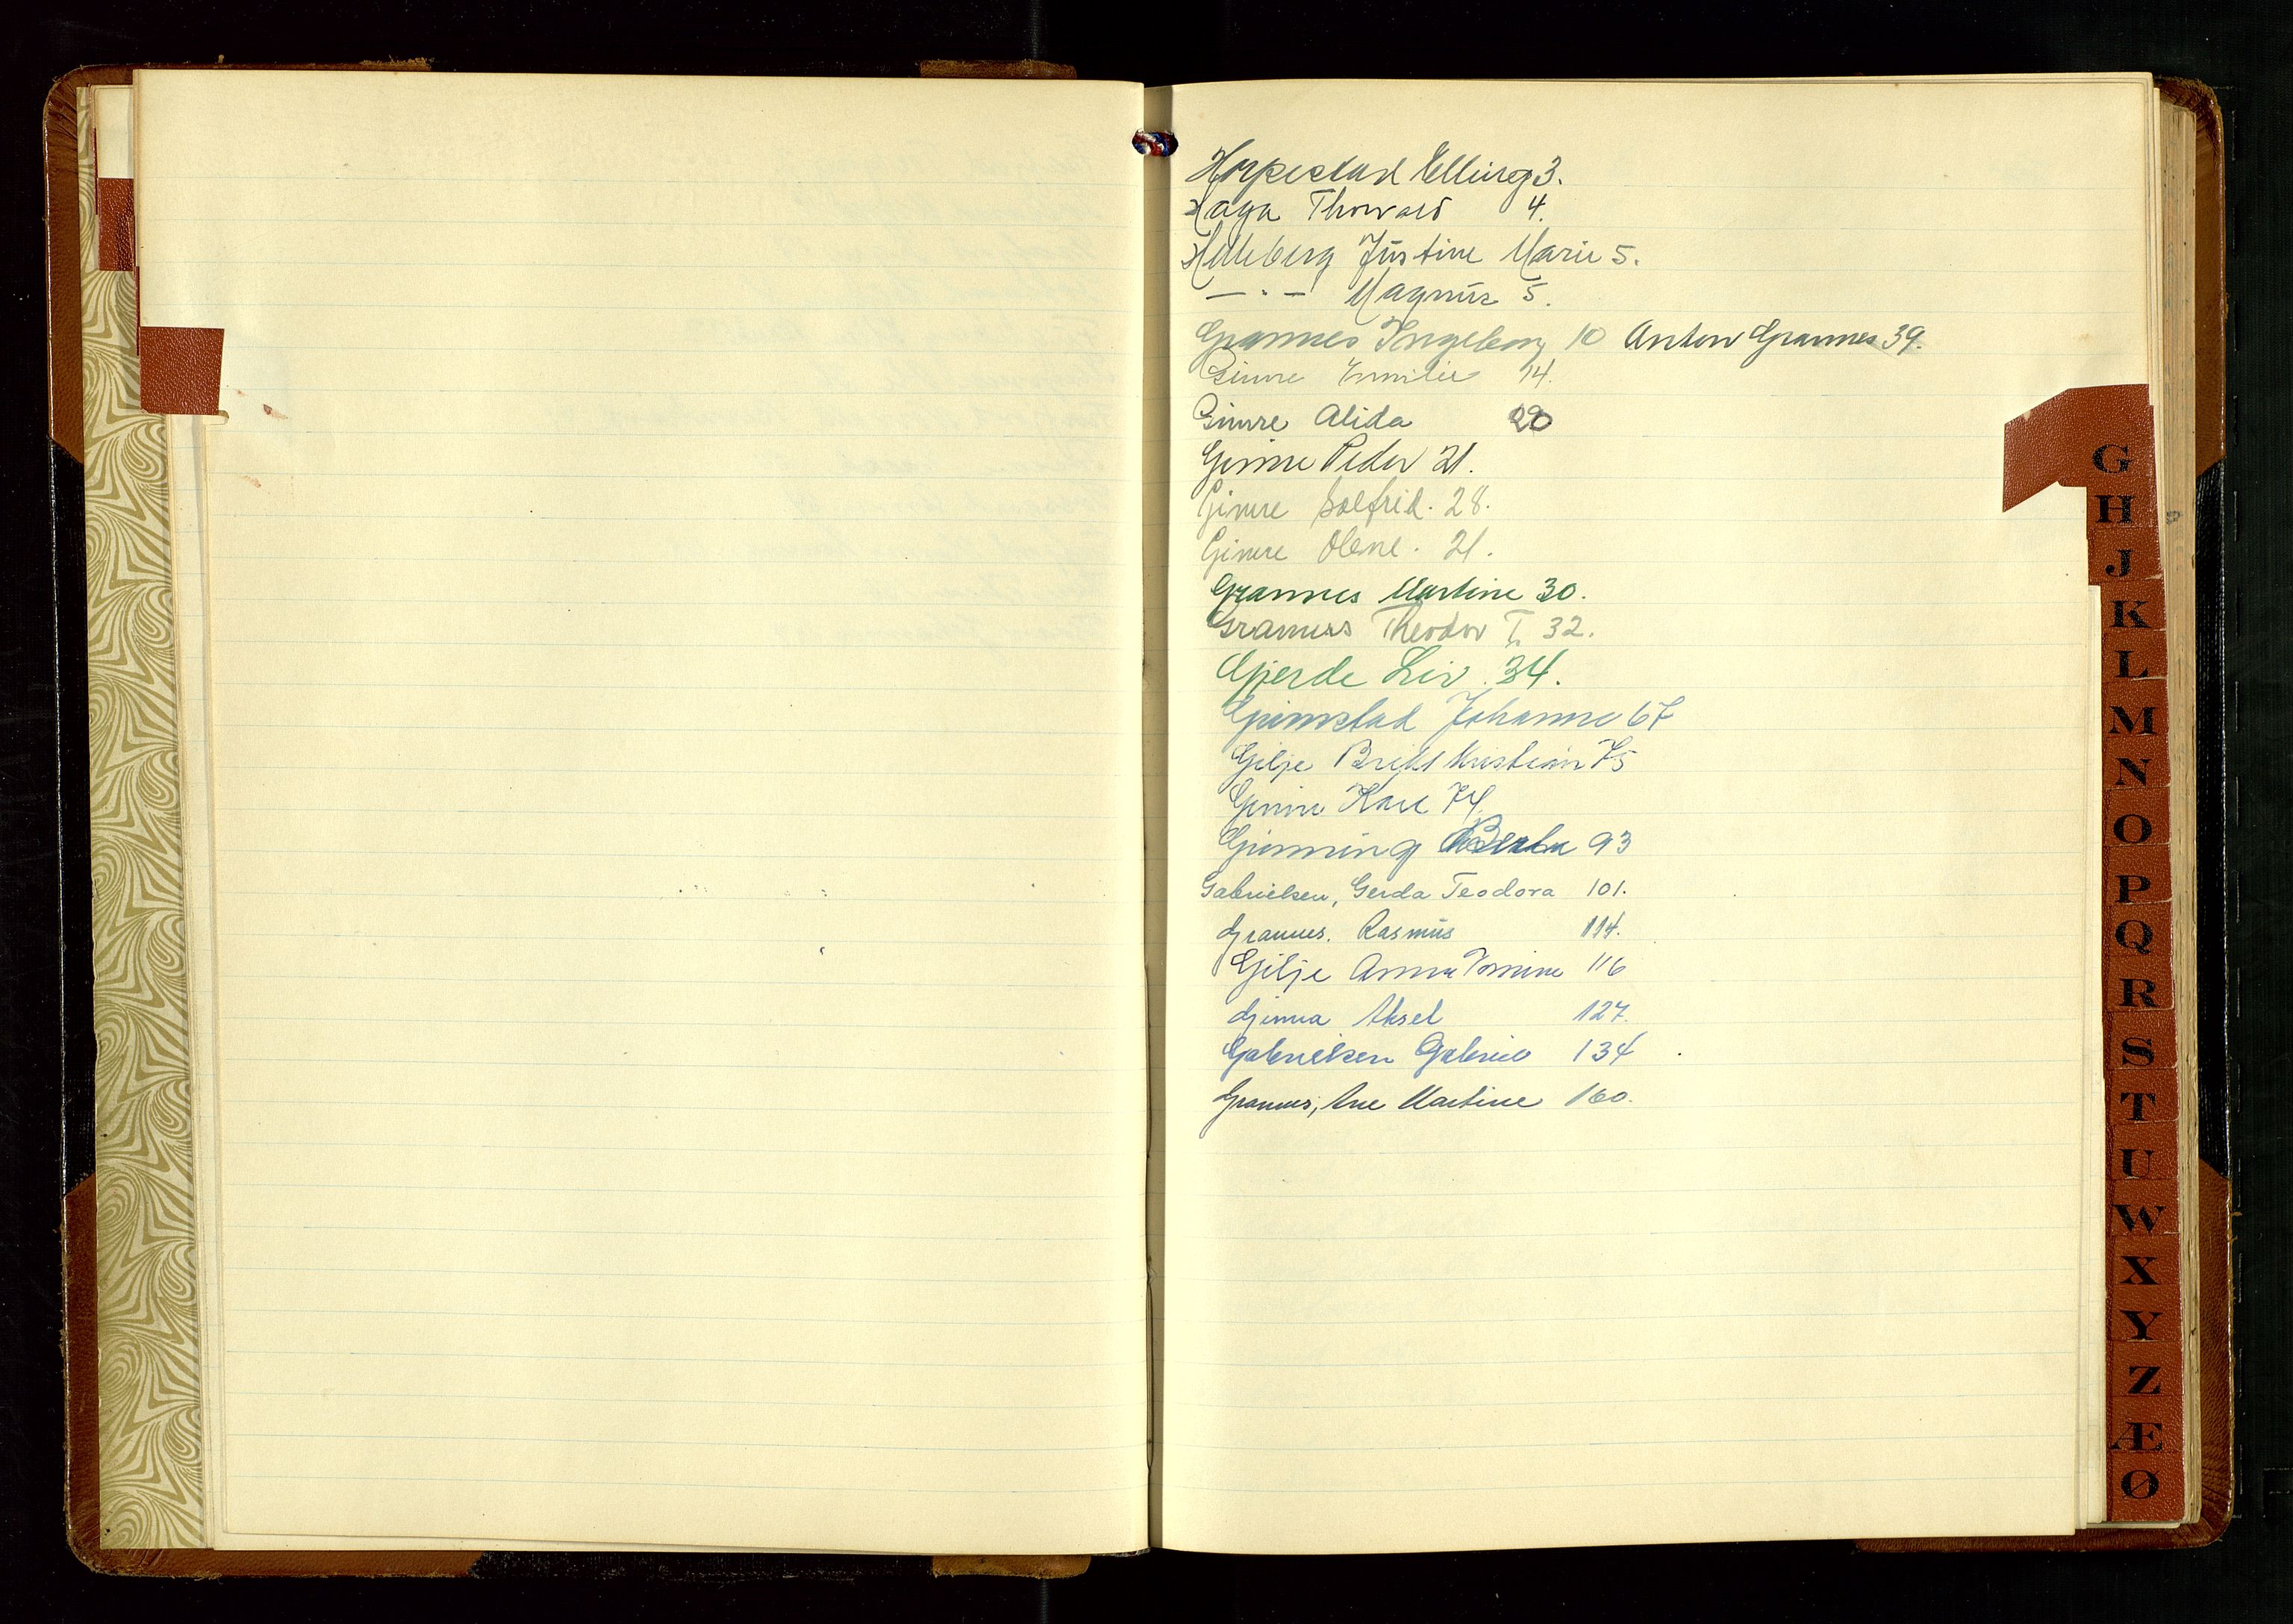 Horpestad Elling 3.
Haga Thorvald 4.
Helleberg Justine Marie 5.
— " — Magnus 5.
Grannes Ingeborg 10 Anton Grannes 39.
Gimre Emilie 14.
Gimre Alida 20
Gimre Peder 21.
Gimre Solfrid. 28.
Gimre Olene. 21.
Grannes Martine 30.
Grannes Theodor T. 32.
Gjerde Liv. 34.
Grimstad Johanne 67
Gilje Kristian 75
Gimre Kare 74.
Gimming Berta 93
Gabrielsen, Gerda Teodora 101.
Grannes. Rasmus 114.
Gilje Anna 116
Gimra Aksel 127.
Gabrielsen Gabriel 134
Grannes, Ane Martine 160.
G
H
J
K
L
M
N
O
P
Q
R
S
T
U
W
X
Y
Z
Æ
Ø